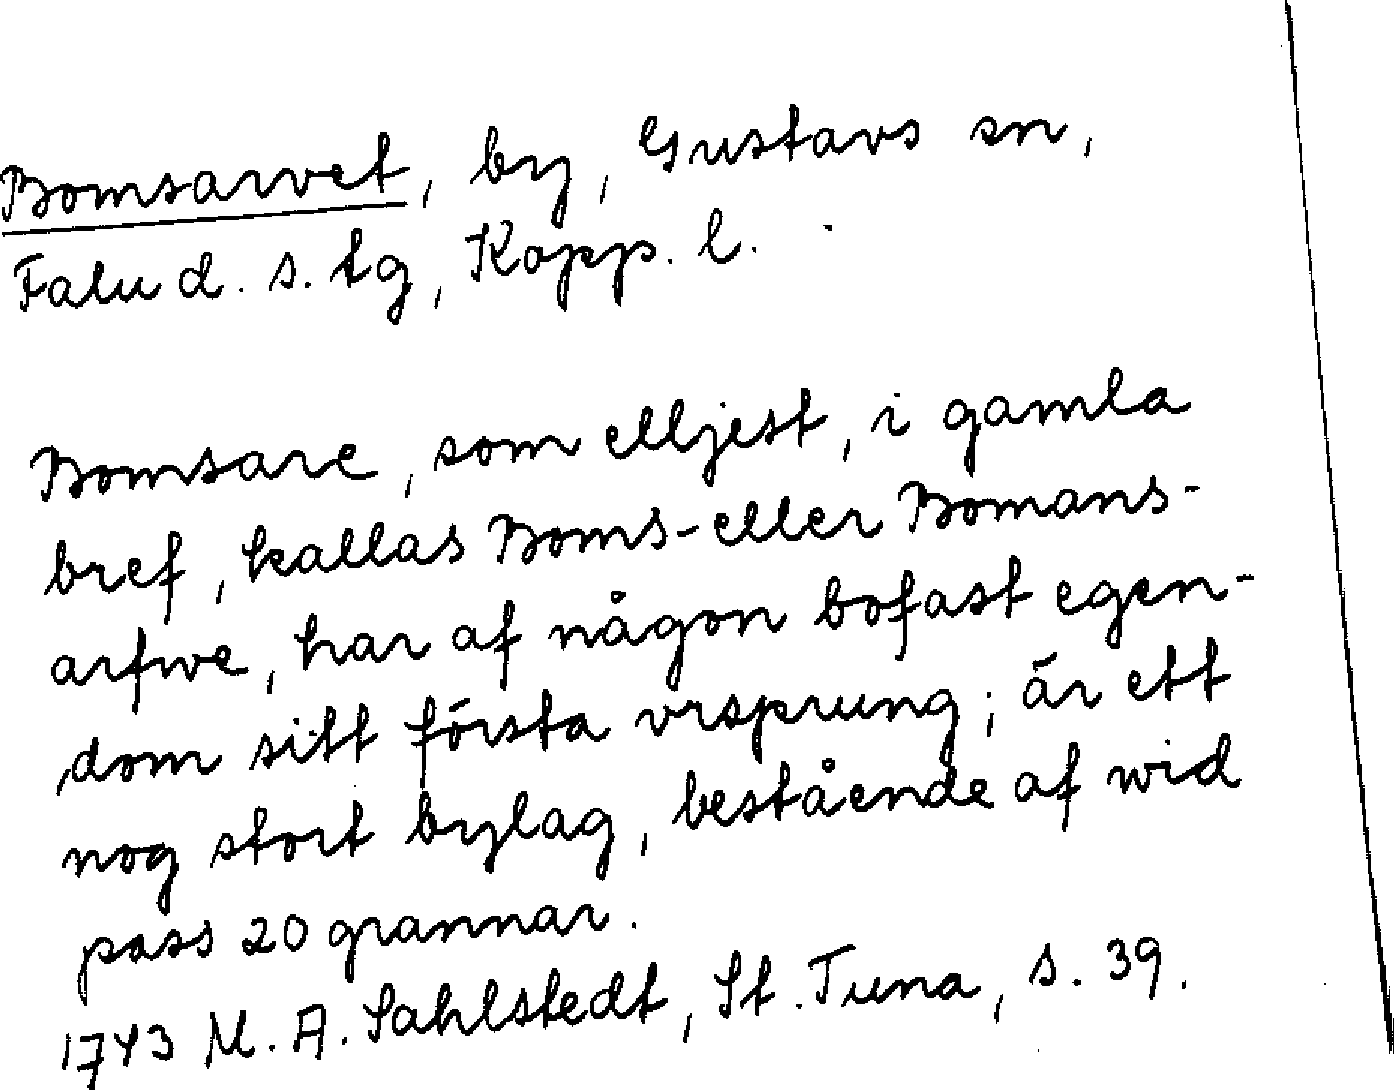 Bomsarvet, by, Gustavs sn,
Falu d. s. tg, Kopp. l.
Bomsare, som elljest, i gamla
bref, kallas Boms-eller Bomans-
arfwe, har af någon bofast egen-
dom sitt första vrsprung; är ett
nog stort bylag, bestående af wid
pass 20 grannar.
1743 M. A. Sahlstedt, St. Tuna, s. 39.